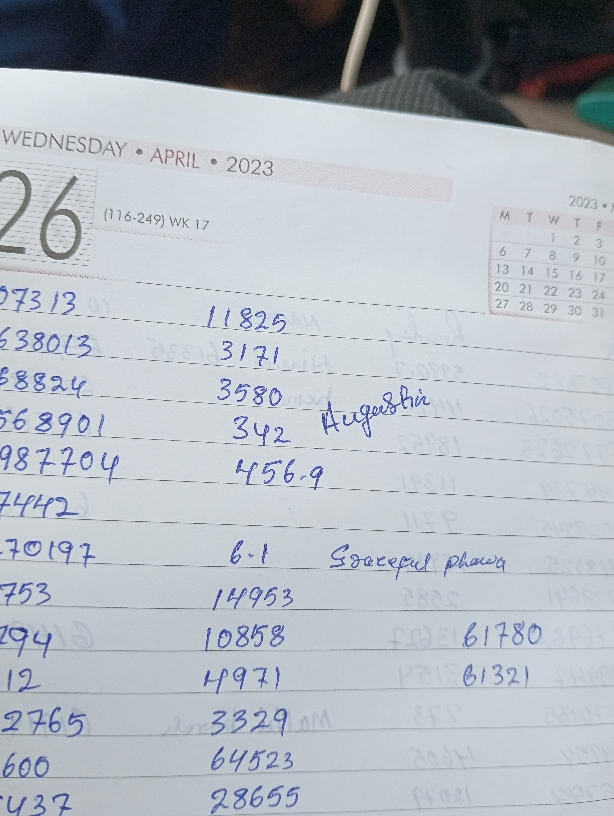 WEDNESDAY • APRIL • 2023
26 (116-249) WK 17
2023 •
M T W T F
1 2 3
6 7 8 9 10
13 14 15 16 17
20 21 22 23 24
27 28 29 30 31
07313 11825
638013 3171
68824 3580
568901 342 Augustin
987704 456.9
7442
70197 6.1 Graceful pharma
753 14953
294 10858 61780
12 4971 61321
2765 3329
600 64523
437 28655